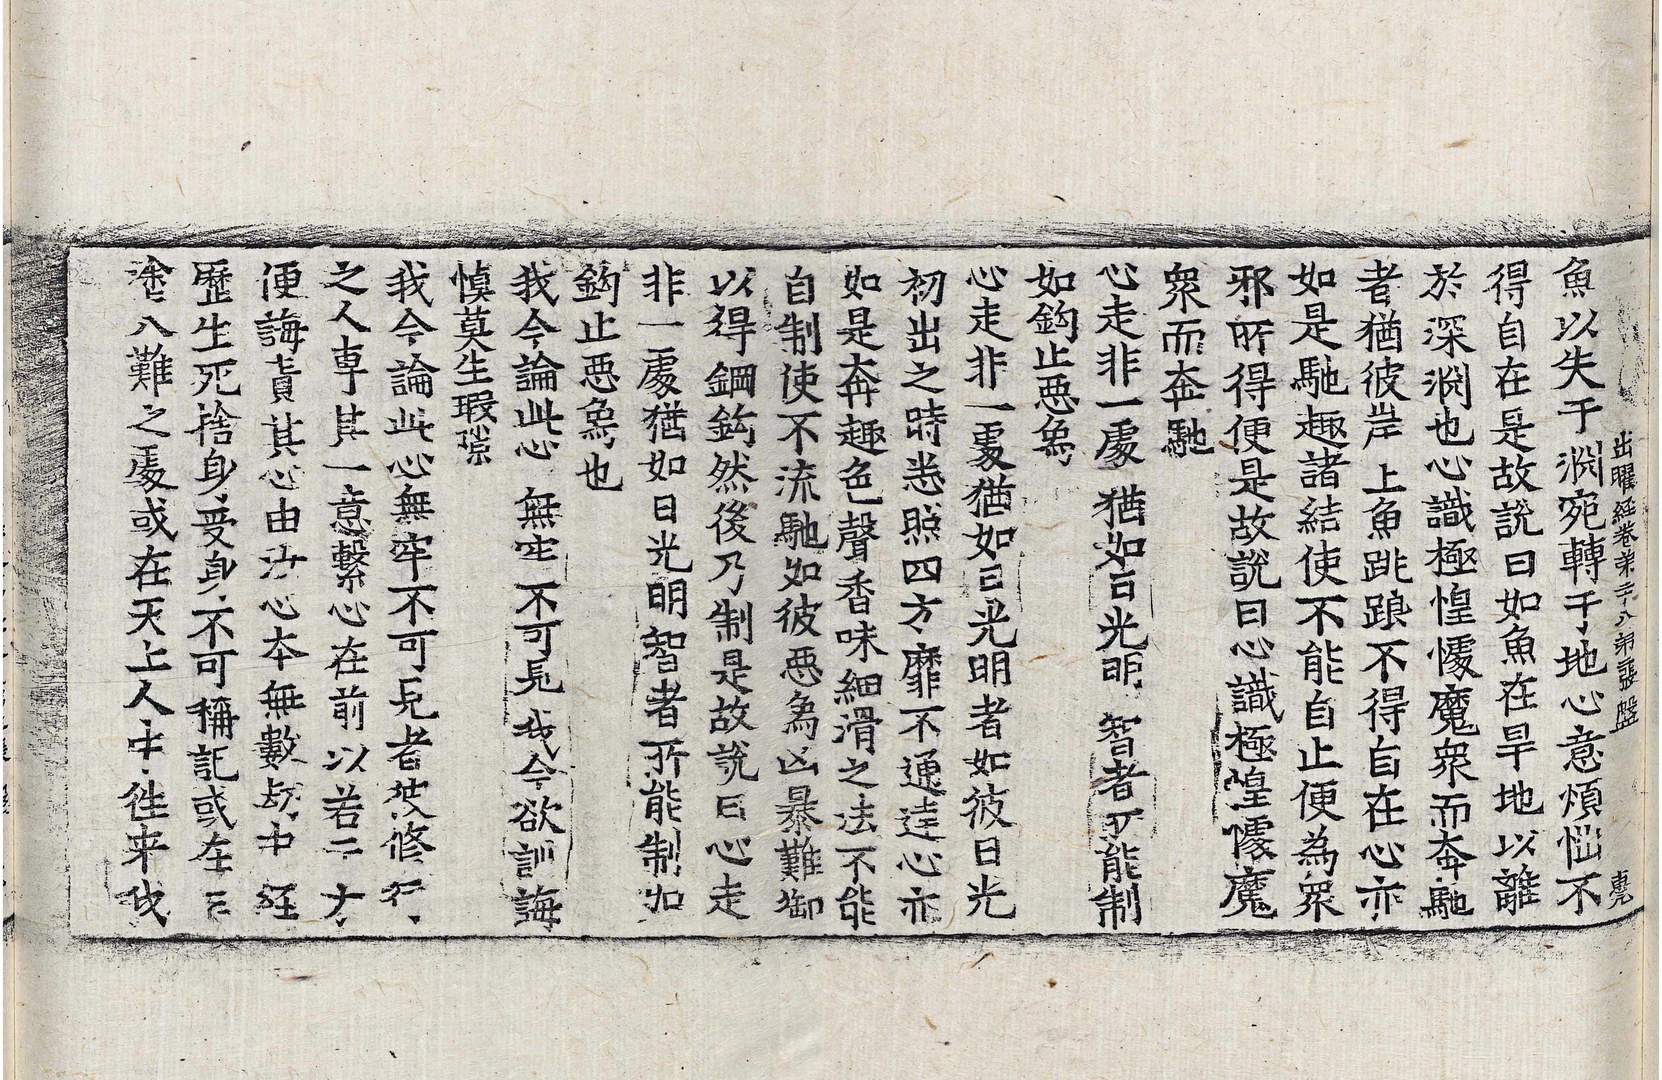 出曜經卷第二十八 第三張 盤
魚以失于渕宛轉于地心意煩惱不
得自在是故說曰如魚在旱地以離
於深渕也心識極惶懅魔衆而奔馳
者猶彼岸上魚跳踉不得自在心亦
如是馳趣諸結使不能自止便為衆
邪所得便是故說曰心識極惶懅魔
衆而奔馳
心走非一處 猶如日光明 智者所能制
如鈎止惡象
心走非一處猶如日光明者如彼日光
初出之時悉照四方靡不通達心亦
如是奔趣色聲香味細滑之法不能
自制使不流馳如彼惡象凶暴難御
以得鋼鈎然後乃制是故說曰心走
非一處猶如日光明智者所能制如
鈎止惡象也
我今論此心 無牢不可見 我今欲訓誨
慎莫生瑕𨻶
我今論此心無牢不可見者彼修行
之人專其一意繫心在前以若干方
便誨責其心由汝心本無數劫中經
歷生死捨身受身不可稱記或在三
塗八難之處或在天上人中往来我